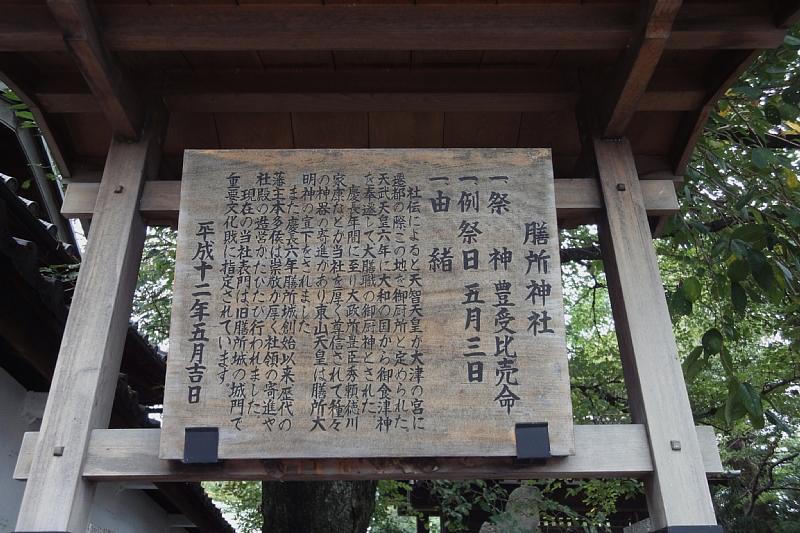 膳所神社
一祭神 豊受比売命
一例祭日 五月三日
一由緒
社伝によると天智天皇が大津の宮に
遷都の際この地を御厨所と定められた、
天武天皇六年に大和の国から御食津神
を奉遷して大膳職の御厨神とされた
慶長年間に至り大政所豊臣秀頼徳川
家康などが当社を厚く尊信されて種々
の神器の寄進があり東山天皇は膳所大
明神の宣下をされました
また慶長六年膳所城創始以来歴代の
藩主本多侯は崇敬が厚く社領の寄進や
社殿の造営がたびたび行われました
現在の当社表門は旧膳所城の城門で
重要文化財に指定されています。
平成十二年五月吉日